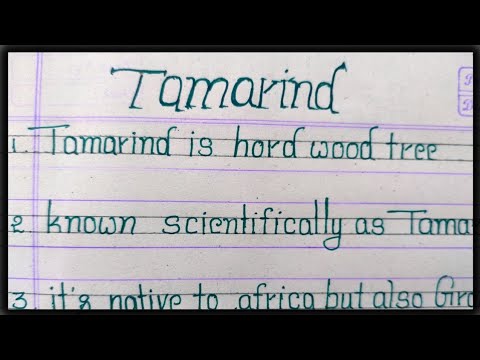 Tamarind
1. Tamarind is hord wood tree
2. known scientifically as Tama
3. it's native to africa but also Gro